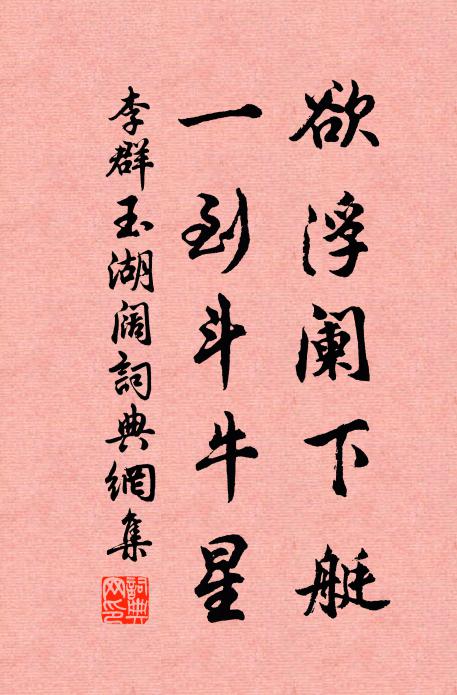 欲浮阑下艇
一到斗牛星
李群玉湖阔詞典網集
詞典
网印